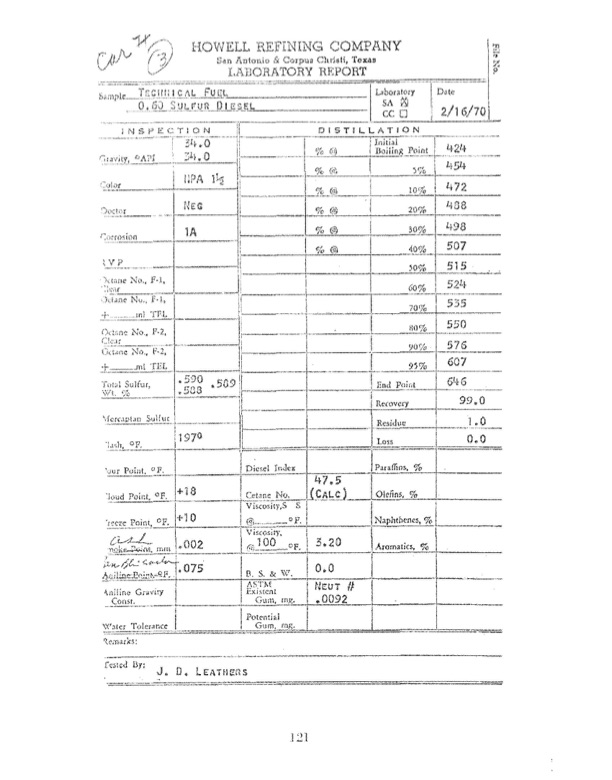 Car #
3
HOWELL REFINING COMPANY
San Antonio & Corpus Christi, Texas
LABORATORY REPORT
File No.
Sample TECHNICAL FUEL
0.60 SULFUR DIESEL
Laboratory
SA ☒
CC ☐
Date
2/16/70
INSPECTION
DISTILLATION
Gravity, °API 34.0
34.0
% @ Initial Boiling Point 424
% @ 5% 454
Color NPA 1½
% @ 10% 472
Doctor NEG
% @ 20% 488
Corrosion 1A
% @ 30% 498
% @ 40% 507
R V P
50% 515
Octane No., F-1, Clear
60% 524
Octane No., F-1,
+ ml TEL
70% 535
Octane No., F-2, Clear
80% 550
Octane No., F-2,
+ ml TEL
90% 576
95% 607
Total Sulfur, Wt. % .590 .589
.588
End Point 646
Recovery 99.0
Mercaptan Sulfur
Residue 1.0
Flash, °F. 197°
Loss 0.0
Pour Point, °F.
Diesel Index
Paraffins, %
Cloud Point, °F. +18
Cetane No. 47.5
(CALC)
Olefins, %
Freeze Point, °F. +10
Viscosity, S S
@ °F.
Naphthenes, %
Ash
Smoke Point, mm .002
Viscosity,
@ 100 °F. 3.20
Aromatics, %
Carbon
Aniline Point, °F. .075
B. S. & W. 0.0
Aniline Gravity Const.
ASTM Existent Gum, mg. NEUT #
.0092
Water Tolerance
Potential Gum, mg.
Remarks:
Tested By: J. D. LEATHERS
121